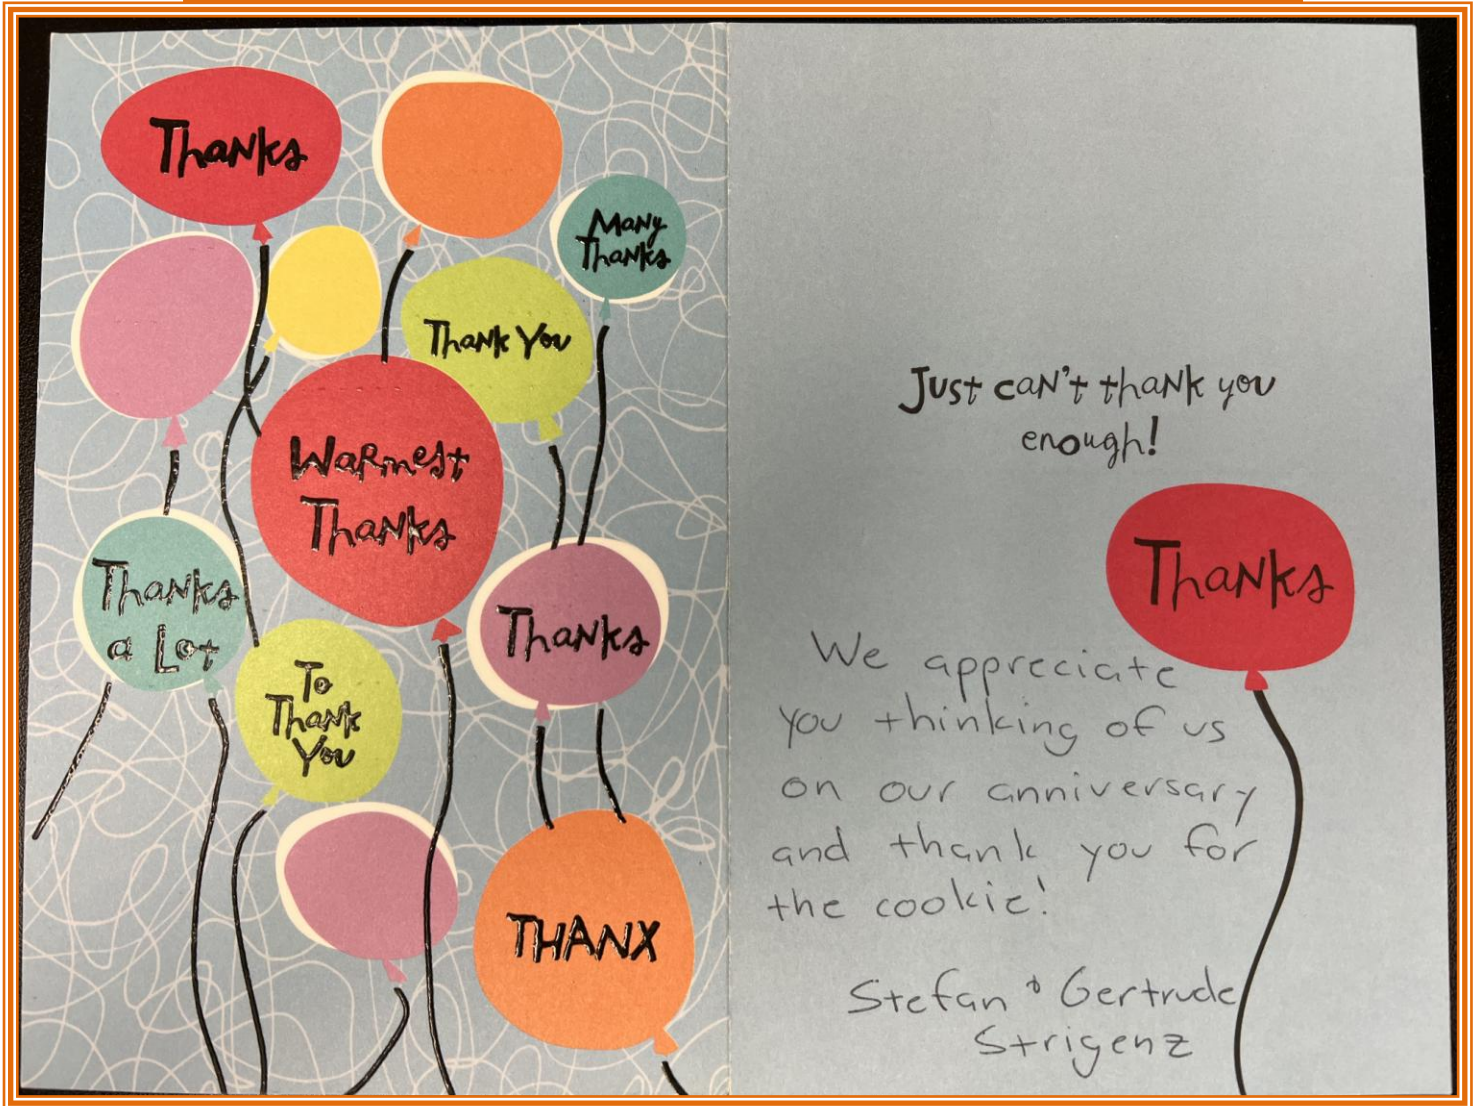 Thanks
Many
Thanks
Thank You
Warmest
Thanks
Thanks
a Lot
Thanks
To
Thank
You
THANX
Just can't thank you
enough!
Thanks
We appreciate
you thinking of us
on our anniversary
and thank you for
the cookie!
Stefan & Gertrude
Strigenz